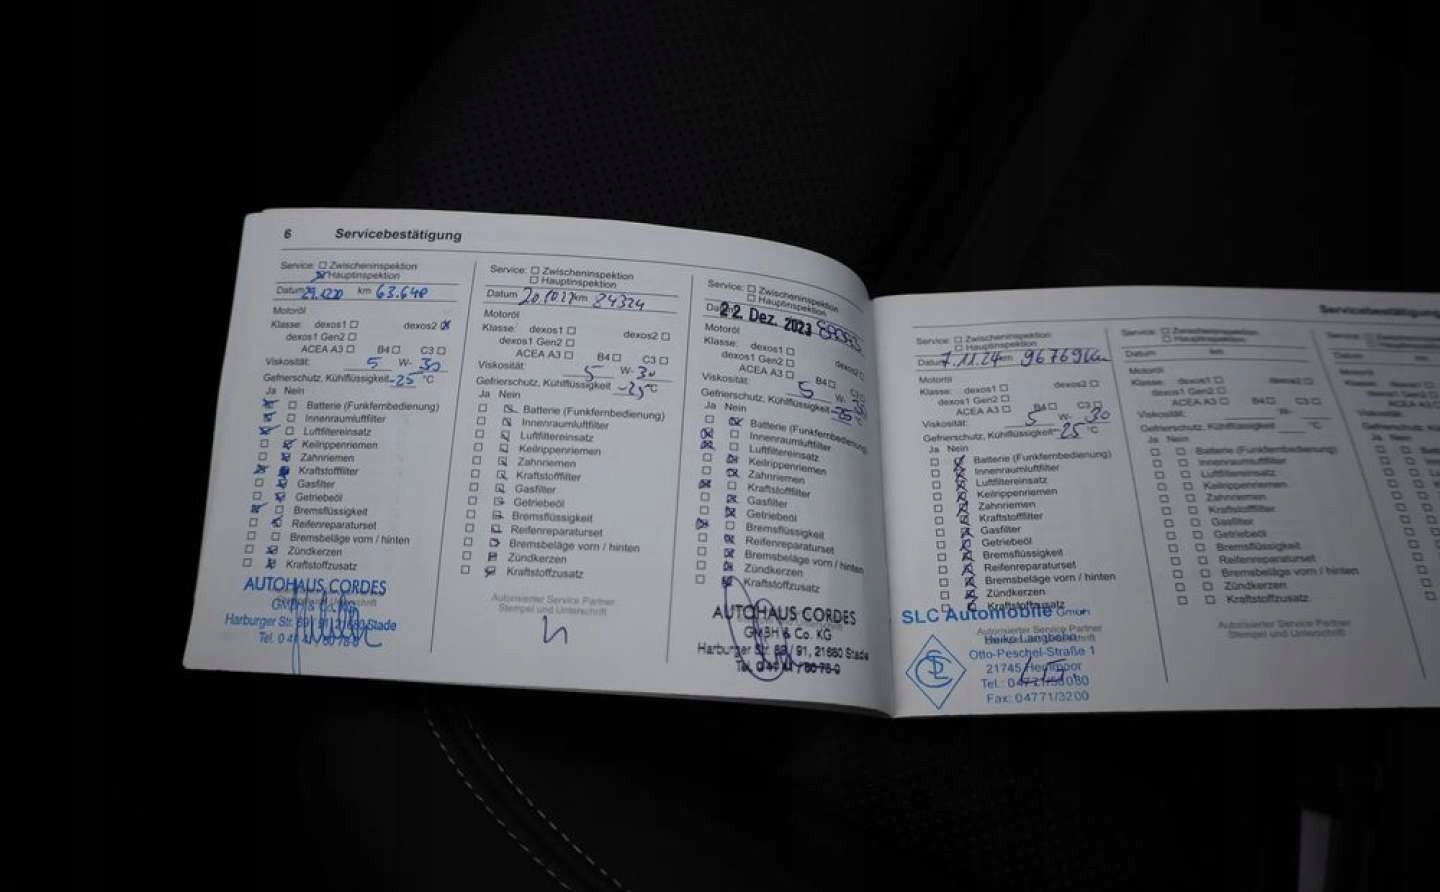 6 Servicebestätigung
Service: Zwischeninspektion
Hauptinspektion
Datum 29.12.20 km 63.648
Motoröl
Klasse: dexos1 dexos2
dexos1 Gen2
ACEA A3 B4 C3
Viskosität: 5 W- 30
Gefrierschutz, Kühlflüssigkeit -25 °C
Ja Nein
Batterie (Funkfernbedienung)
Innenraumluftfilter
Luftfiltereinsatz
Keilrippenriemen
Zahnriemen
Kraftstofffilter
Gasfilter
Getriebeöl
Bremsflüssigkeit
Reifenreparaturset
Bremsbeläge vorn / hinten
Zündkerzen
Kraftstoffzusatz
AUTOHAUS CORDES
GMBH & Co. KG
Harburger Str. 89 / 91, 21680 Stade
Service: Zwischeninspektion
Hauptinspektion
Datum km
Motoröl
Klasse: dexos1 dexos2
dexos1 Gen2
ACEA A3 B4 C3
Viskosität: 5 W- 30
Gefrierschutz, Kühlflüssigkeit -25 °C
Ja Nein
Batterie (Funkfernbedienung)
Innenraumluftfilter
Luftfiltereinsatz
Keilrippenriemen
Zahnriemen
Kraftstofffilter
Gasfilter
Getriebeöl
Bremsflüssigkeit
Reifenreparaturset
Bremsbeläge vorn / hinten
Zündkerzen
Kraftstoffzusatz
Autorisierter Service Partner
Stempel und Unterschrift
Service: Zwischeninspektion
Hauptinspektion
22. Dez. 2023
Motoröl
Klasse: dexos1 dexos2
dexos1 Gen2
ACEA A3 B4
Viskosität: 5 W- 30
Gefrierschutz, Kühlflüssigkeit -25 °C
Ja Nein
Batterie (Funkfernbedienung)
Innenraumluftfilter
Luftfiltereinsatz
Keilrippenriemen
Zahnriemen
Kraftstofffilter
Gasfilter
Getriebeöl
Bremsflüssigkeit
Reifenreparaturset
Bremsbeläge vorn / hinten
Zündkerzen
Kraftstoffzusatz
AUTOHAUS CORDES
GMBH & Co. KG
Harburger Str. 89 / 91, 21680 Stade
Servicebestätigung
Service: Zwischeninspektion
Hauptinspektion
Datum 7.11.24 km 96769 km
Motoröl
Klasse: dexos1 dexos2
dexos1 Gen2
ACEA A3 B4 C3
Viskosität: 5 W- 30
Gefrierschutz, Kühlflüssigkeit -25 °C
Ja Nein
Batterie (Funkfernbedienung)
Innenraumluftfilter
Luftfiltereinsatz
Keilrippenriemen
Zahnriemen
Kraftstofffilter
Gasfilter
Getriebeöl
Bremsflüssigkeit
Reifenreparaturset
Bremsbeläge vorn / hinten
Zündkerzen
Kraftstoffzusatz
SLC Automobile GmbH
Autorisierter Service Partner
Heiko Langbehn
Otto-Peschel-Straße 1
21745 Hemmoor
Fax: 04771/3200
Service: Zwischeninspektion
Hauptinspektion
Datum km
Motoröl
Klasse: dexos1 dexos2
dexos1 Gen2
ACEA A3 B4 C3
Viskosität: W-
Gefrierschutz, Kühlflüssigkeit °C
Ja Nein
Batterie (Funkfernbedienung)
Innenraumluftfilter
Luftfiltereinsatz
Keilrippenriemen
Zahnriemen
Kraftstofffilter
Gasfilter
Getriebeöl
Bremsflüssigkeit
Reifenreparaturset
Bremsbeläge vorn / hinten
Zündkerzen
Kraftstoffzusatz
Autorisierter Service Partner
Stempel und Unterschrift
Service:
Datum
Motoröl
Klasse:
Viskosität:
Ja Nein